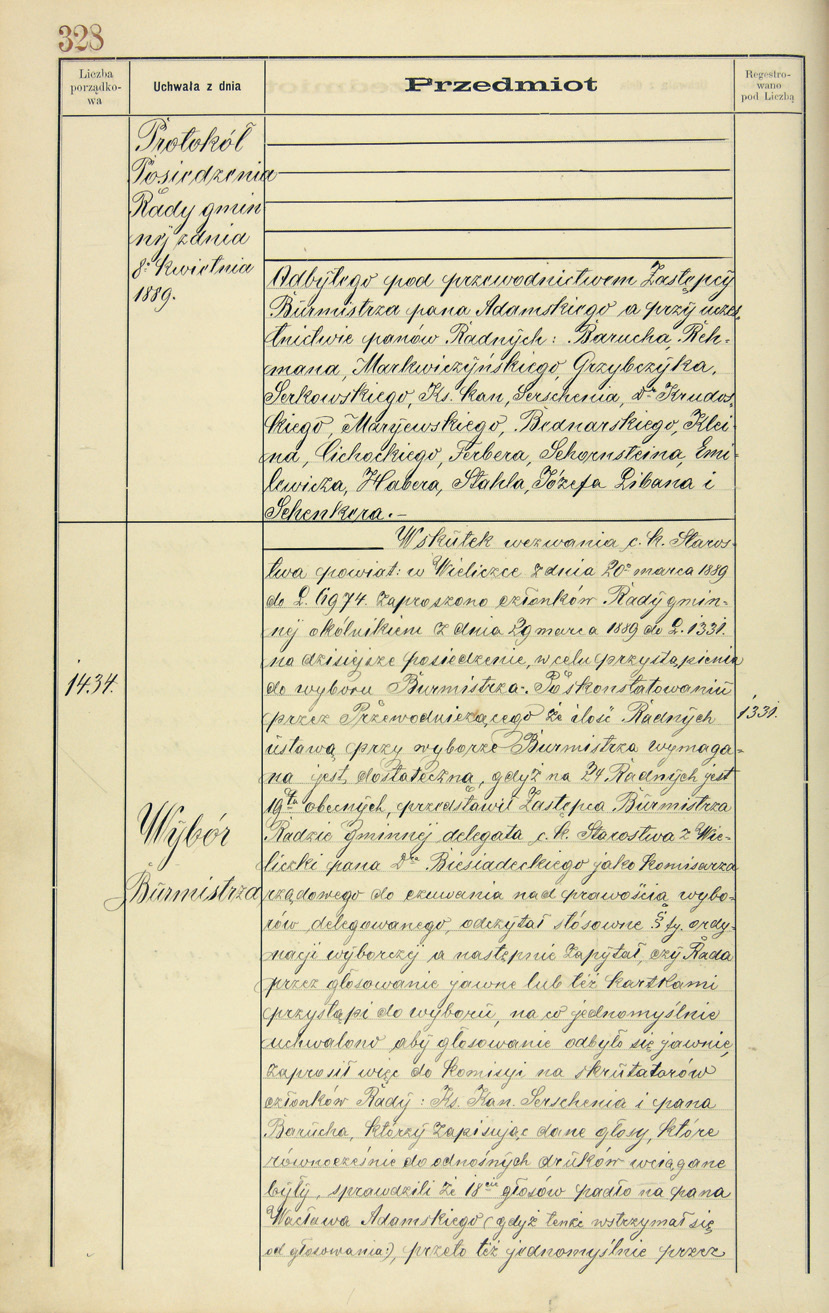 328
Liczba
porządko-
wa
Uchwała z dnia
Przedmiot
Regestro-
wano
pod Liczbą
Protokół
Posiedzenia
Rady gmin
nej z dnia
8: kwietnia
1889.
Odbytego pod przewodnictwem Zastępcy
Burmistrza pana Adamskiego a przy uczes,
tnictwie panów Radnych: Barucha, Reh-
mana, Markwiczyńskiego, Grzybczyka,
Serkowskiego, Ks. Kan, Serschenia, Dra Krudos,
kiego, Maryewskiego, Bednarskiego, Klei-
na, Cichockiego, Ferbera, Schornsteina, Emi-
lewicza, Habera, Stahla, Józefa Libana i
Schenkera.—
1434.
Wybór
Burmistrza
Wskutek wezwania c. k. Staros-
twa powiat: w Wieliczce z dnia 20go marca 1889
do L. 6974. zaproszono członków Rady gmin-
nej okólnikiem z dnia 29 marca 1889 do L. 1331.
na dzisiejsze posiedzenie, w celu przystąpienia
do wyboru Burmistrza. Po skonstatowaniu
przez Przewodniczącego że ilość Radnych
ustawą przy wyborze Burmistrza wymaga-
na jest dostateczna, gdyż na 24 Radnych jest
19tu obecnych, przedstawił Zastępca Burmistrza
Radzie gminnej delegata c. k. Starostwa z Wie-
liczki pana Dra Biesiadeckiego jako komisarza
rządowego do czuwania nad prawością wybo-
rów delegowanego, odczytał stósowne §§fy. ordy-
nacyi wyborczej a następnie zapytał, czy Rada
przez głosowanie jawne lub też kartkami
przystąpi do wyboru, na co jednomyślnie
uchwalono aby głosowanie odbyło się jawnie,
zaprosił więc do komisyi na skrutatorów
członków Rady: Ks. Kan. Serschenia i pana
Barucha, którzy zapisując dane głosy, które
równocześnie do odnośnych druków wciągane
były, sprawdzili że 18cie głosów padło na pana
Wacława Adamskiego (gdyż tenże wstrzymał się
od głosowania:), przeto też jednomyślnie przez
1331.